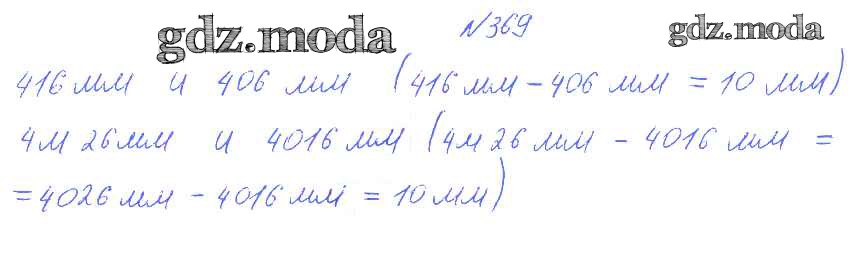 gdz.moda №369 gdz.moda
416 мм и 406 мм (416 мм - 406 мм = 10 мм)
4м 26мм и 4016 мм (4м 26 мм - 4016 мм =
= 4026 мм - 4016 мм = 10 мм)